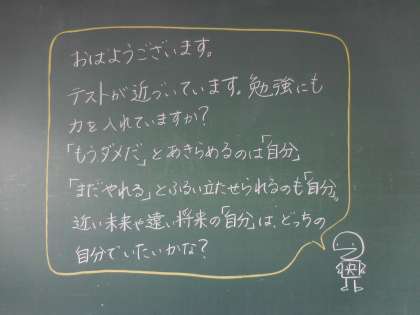 おはようございます。
テストが近づいています。勉強にも
力を入れていますか?
「もうダメだ」とあきらめるのは「自分」
「まだやれる」とふるい立たせられるのも「自分」。
近い未来や遠い将来の「自分」は、どっちの
自分でいたいかな?